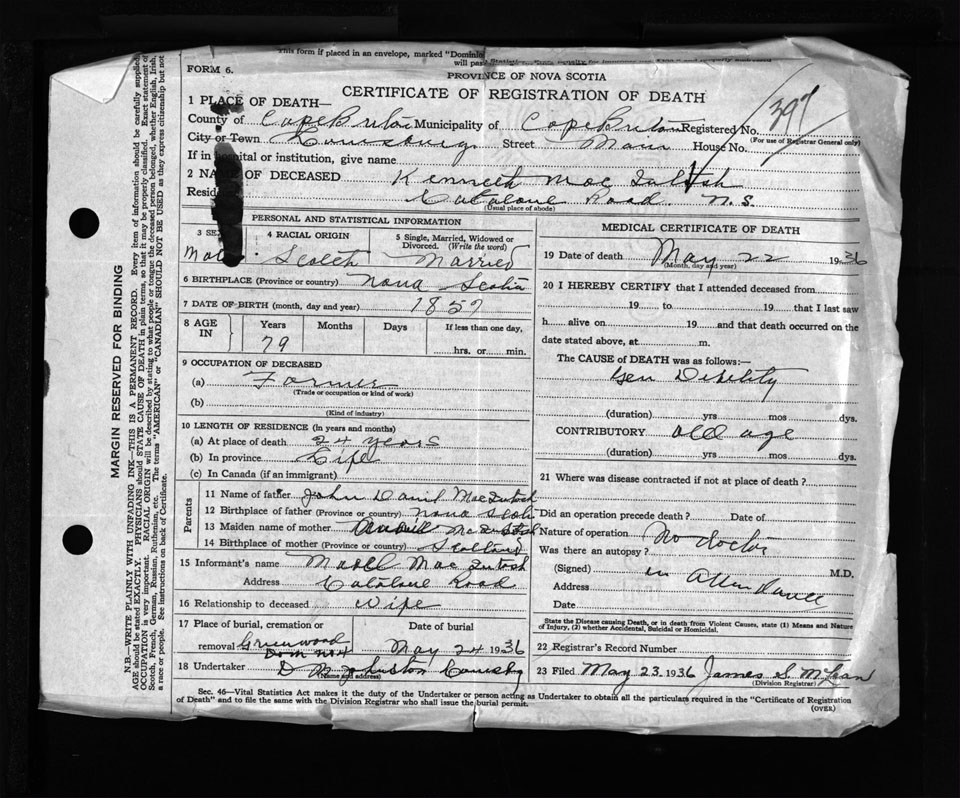 This form if placed in an envelope, marked "Dominion
will pass
FORM 6.
PROVINCE OF NOVA SCOTIA
CERTIFICATE OF REGISTRATION OF DEATH
397
1 PLACE OF DEATH—
County of Cape Breton Municipality of Cape Breton Registered No.
(For use of Registrar General only)
City or Town Louisburg Street Main House No.
If in hospital or institution, give name
2 NAME OF DECEASED Kenneth MacIntosh
Residence Catalone Road N.S.
(Usual place of abode)
PERSONAL AND STATISTICAL INFORMATION
3 SEX Male
4 RACIAL ORIGIN Scotch
5 Single, Married, Widowed or Divorced. (Write the word) Married
6 BIRTHPLACE (Province or country) Nova Scotia
7 DATE OF BIRTH (month, day and year) 1857
8 AGE IN Years 79 Months Days If less than one day, hrs. or min.
9 OCCUPATION OF DECEASED
(a) Farmer
(Trade or occupation or kind of work)
(b)
(Kind of industry)
10 LENGTH OF RESIDENCE (In years and months)
(a) At place of death 24 years
(b) In province Life
(c) In Canada (if an immigrant)
Parents
11 Name of father John David MacIntosh
12 Birthplace of father (Province or country) Nova Scotia
13 Maiden name of mother
14 Birthplace of mother (Province or country) Scotland
15 Informant's name MacIntosh
Address Catalone Road
16 Relationship to deceased Wife
17 Place of burial, cremation or removal Greenwood
Date of burial May 24 1936
18 Undertaker D M Johnston
(Name and address)
MEDICAL CERTIFICATE OF DEATH
19 Date of death May 22 1936
(Month, day and year)
20 I HEREBY CERTIFY that I attended deceased from
19 to 19 that I last saw
h alive on 19 and that death occurred on
date stated above, at m.
The CAUSE of DEATH was as follows:—
Gen Debility
(duration) yrs mos dys.
CONTRIBUTORY old age
(duration) yrs mos dys.
21 Where was disease contracted if not at place of death?
Did an operation precede death? Date of
Nature of operation
No doctor
Was there an autopsy?
(Signed) in M.D.
Address
Date
State the Disease causing Death, or in death from Violent Causes, state (1) Means and Nature of Injury, (2) whether Accidental, Suicidal or Homicidal.
22 Registrar's Record Number
23 Filed May 23 1936 James S. McLean
(Division Registrar)
Sec. 46—Vital Statistics Act makes it the duty of the Undertaker or person acting as Undertaker to obtain all the particulars required in the "Certificate of Registration
of Death" and to file the same with the Division Registrar who shall issue the burial permit.
(OVER)
MARGIN RESERVED FOR BINDING
N.B.—WRITE PLAINLY WITH UNFADING INK—THIS IS A PERMANENT RECORD. Every item of information should be carefully supplied.
AGE should be stated EXACTLY. PHYSICIANS should STATE CAUSE OF DEATH in plain terms, so that it may be properly classified. Exact statement of
OCCUPATION is very important. RACIAL ORIGIN will be described by stating to what people or tongue the deceased person belonged, whether English, Irish,
Scotch, French, German, Russian, Ruthenian, etc. The terms "AMERICAN" or "CANADIAN" SHOULD NOT BE USED as they express citizenship but not
a race or people. See instructions on back of Certificate.